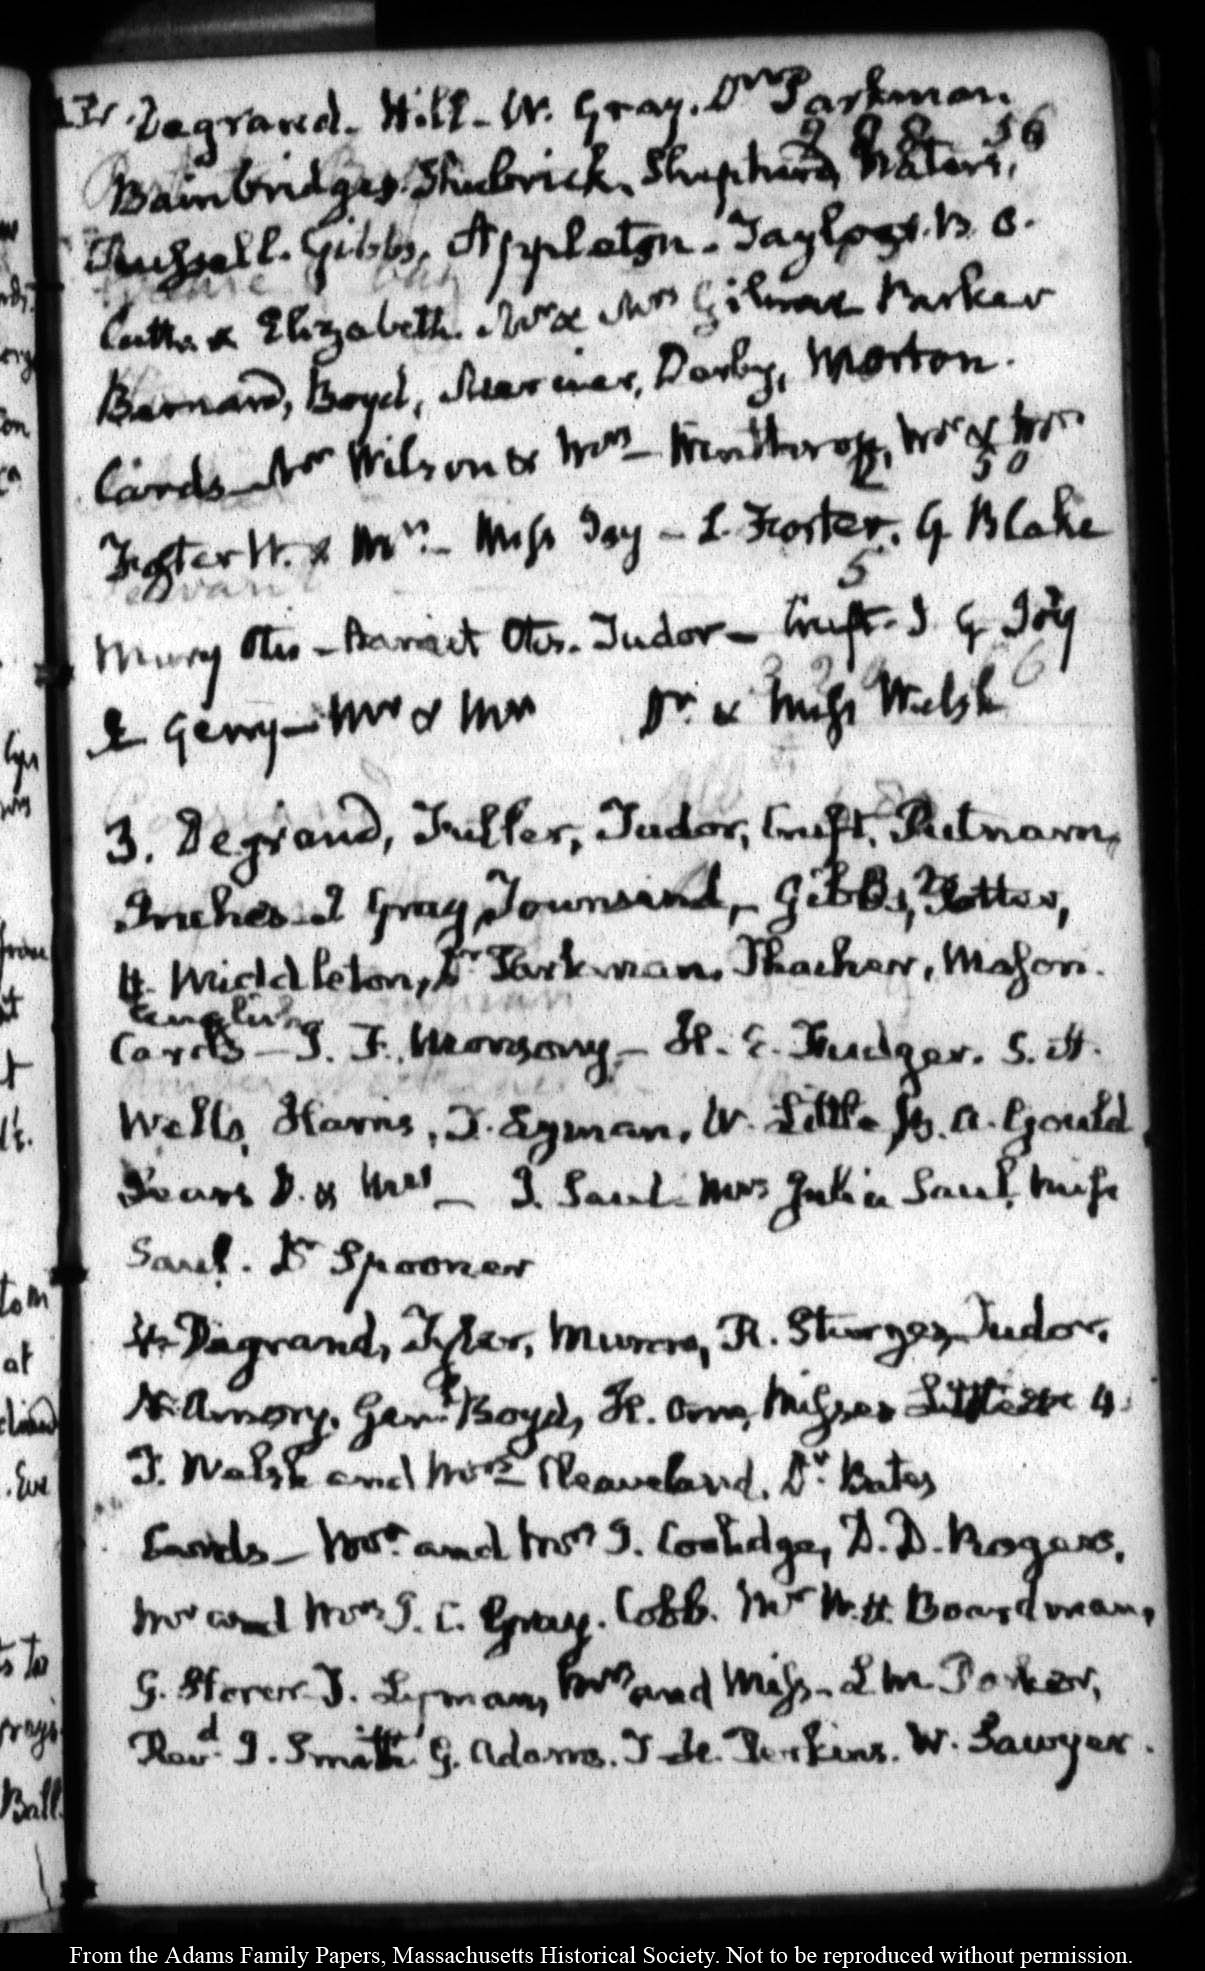 Degrand. Hill. W. Gray. Drs Parkman.
2 8 8 56
Bainbridges. Shubrick, Shephard, Waters,
Russell. Gibbs, Appleton. Taylor. B. O.
Cath. & Elizabeth. Mr & Mrs Gilman Parker
Barnard, Boyd, Mariner, Derby, Morton.
Cards. Mr Wilson & Mrs Winthrop, Mr & Mrs
12 50
Foster W. & Mrs. Miss Joy - L. Foster. G Blake
5
Mary Otis - Harriet Otis. Tudor - Cruft. J G Joy
E Gerry - Mr & Mrs Dr. & Miss Welsh
3. Degrand, Fuller, Tudor, Cruft, Putnam,
Inches J Gray, Townsend, Gibbs, 2 Potter,
4. Middleton, Dr Parkman, Thacher, Mason.
Cards - J. F. H. E. Fudger. S. A.
Wells, Harris, T. Lyman, W. Little Jr. B. A. Gould
Sears D. & Mrs - J. Saul. Mrs Julia Saul, Miss
Saul. Dr Spooner
4. Degrand, Tyler, Munro, R. Sturges, Tudor,
N. Amory. Genl Boyd, H. Orne, Misses 4.
T. Welsh and Mrs Cleaveland. Dr. Bates
Cards - Mr. and Mrs J. Coolidge, D. D. Rogers,
Mr and Mrs J. C. Gray. Cobb. Mr W. H. Boardman,
G. Storer T. Lyman, Mrs and Miss - L M Parker,
Revd. J. Smith. G. Adams. T H. Perkins. W. Sawyer.
lyn
from
at
to m
at
s to
Ball.
From the Adams Family Papers, Massachusetts Historical Society. Not to be reproduced without permission.